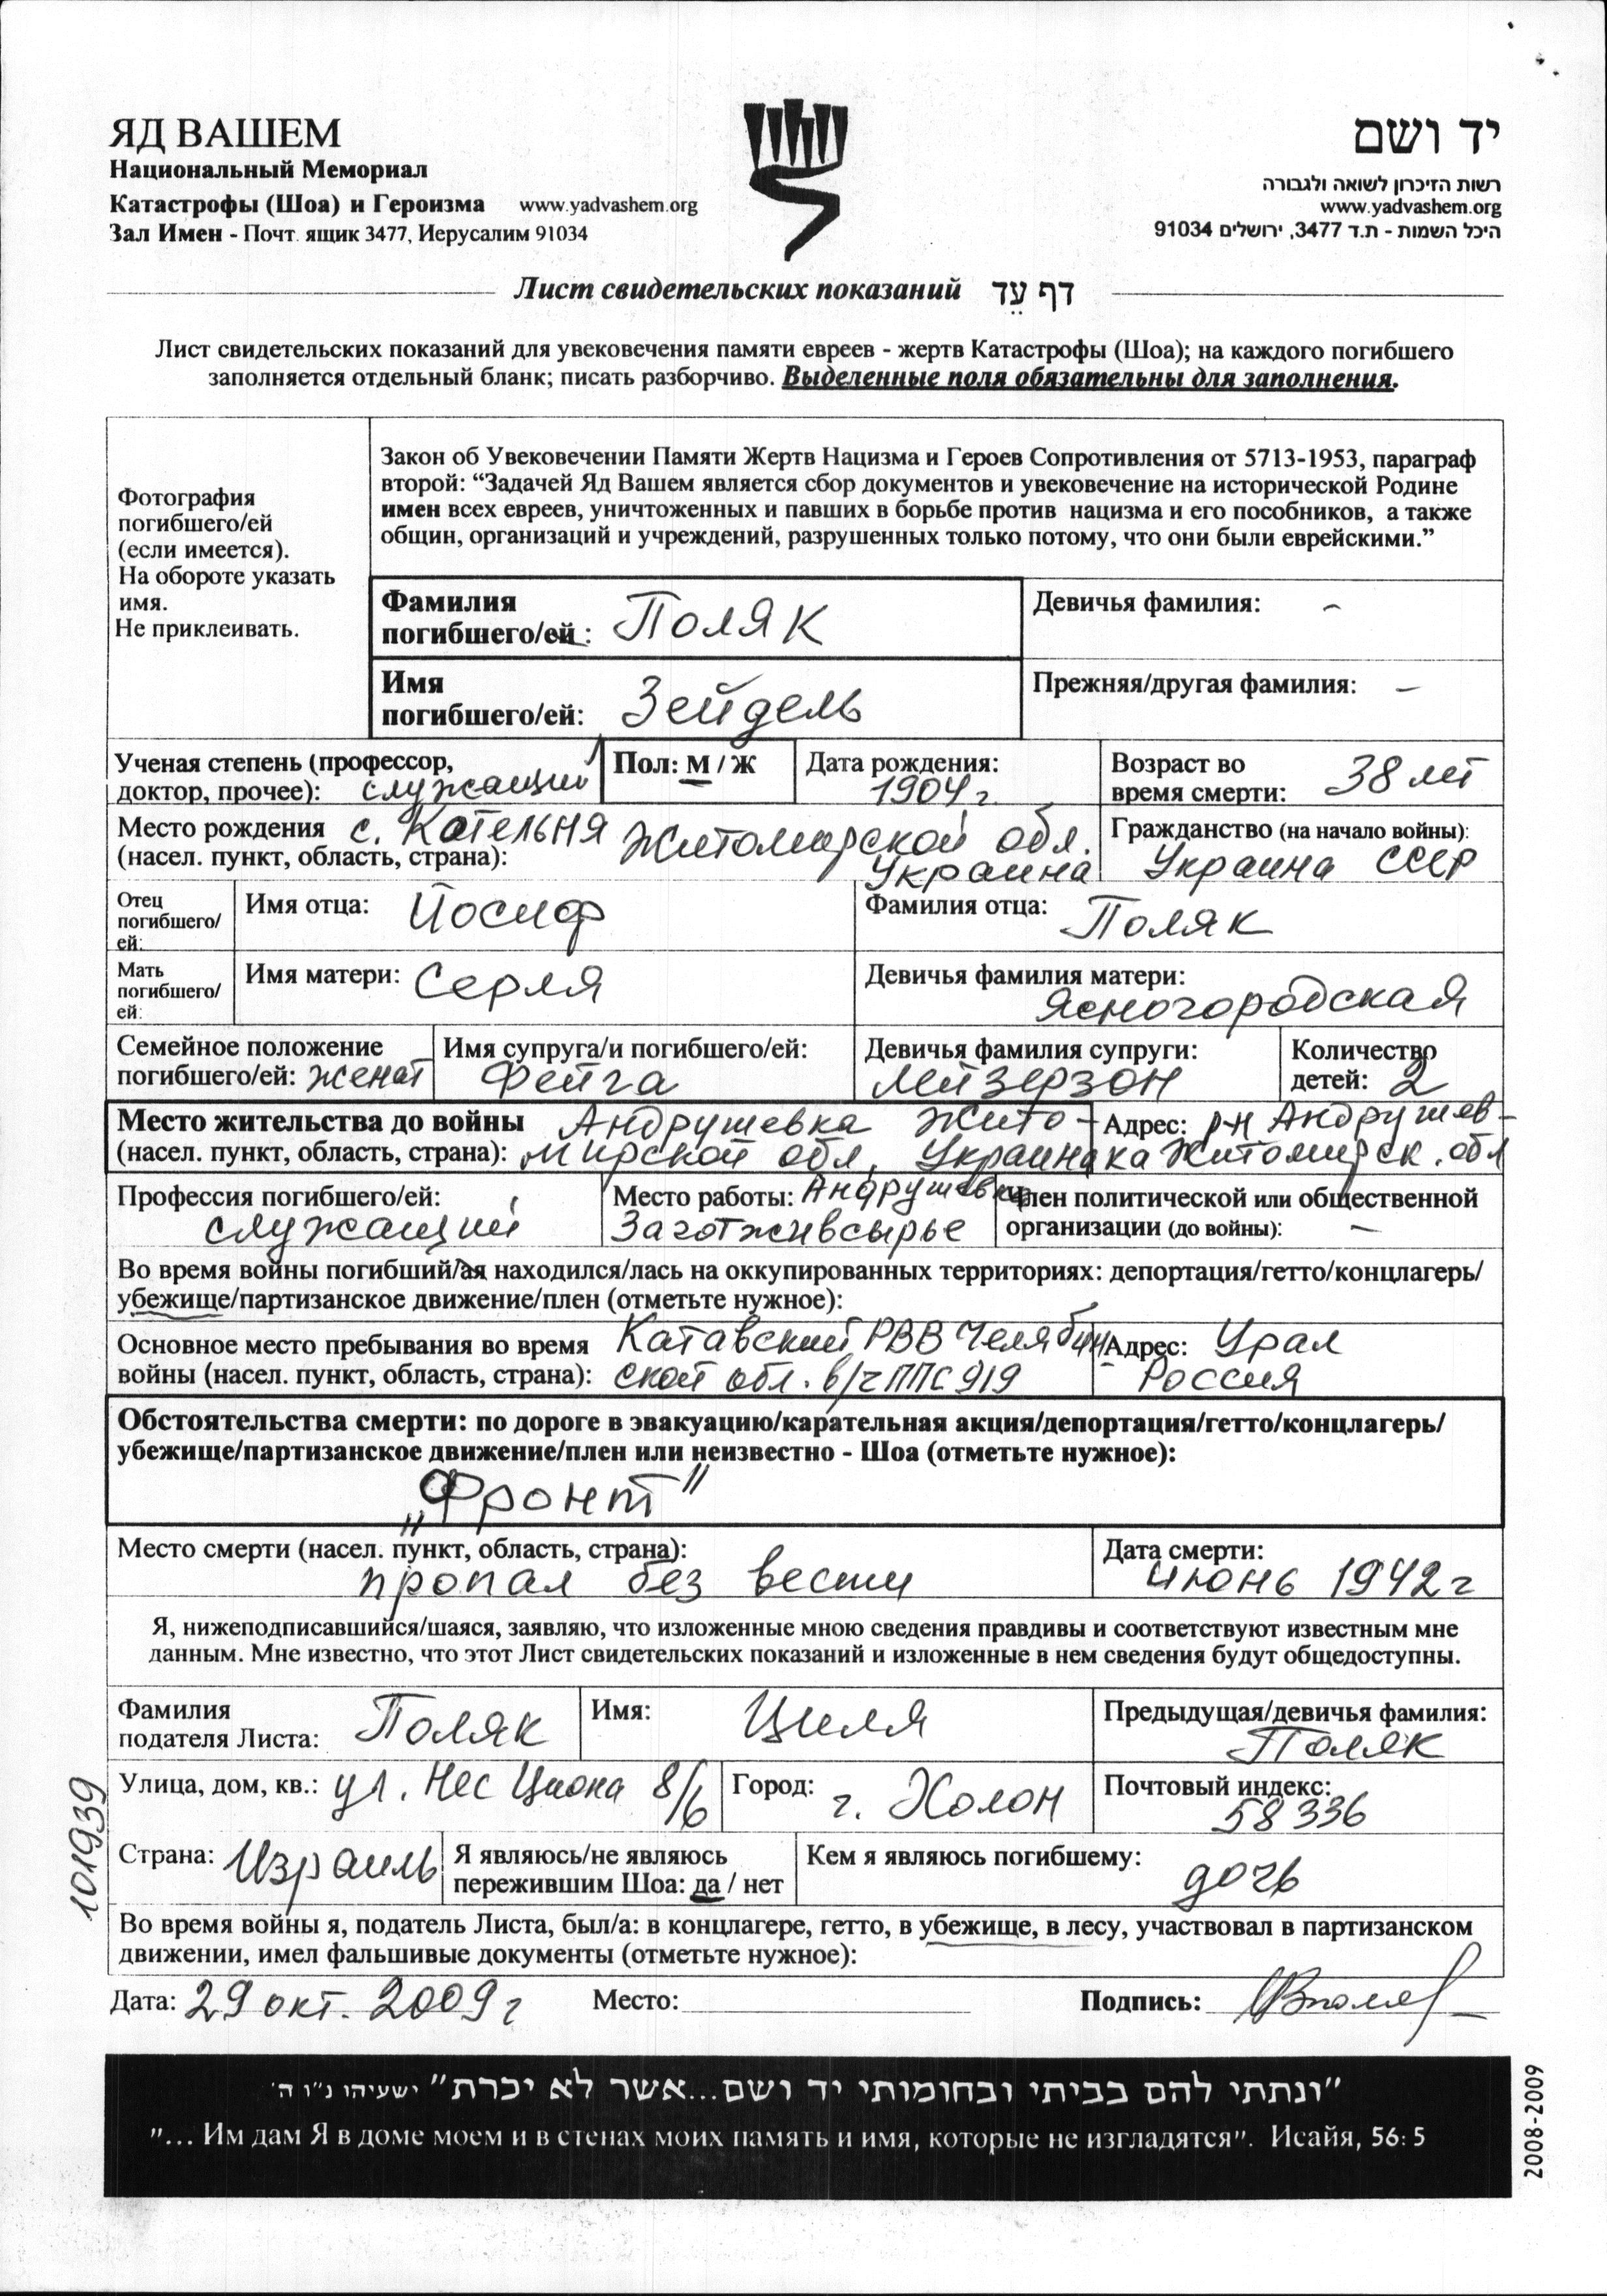 ЯД ВАШЕМ
Национальный Мемориал
Катастрофы (Шоа) и Героизма www.yadvashem.org
Зал Имен - Почт. ящик 3477, Иерусалим 91034
יד ושם
רשות הזיכרון לשואה ולגבורה
www.yadvashem.org
היכל השמות - ת.ד 3477, ירושלים 91034
Лист свидетельских показаний דף עֵד
Лист свидетельских показаний для увековечения памяти евреев - жертв Катастрофы (Шоа); на каждого погибшего
заполняется отдельный бланк; писать разборчиво. Выделенные поля обязательны для заполнения.
Фотография
погибшего/ей
(если имеется).
На обороте указать
имя.
Не приклеивать.
Закон об Увековечении Памяти Жертв Нацизма и Героев Сопротивления от 5713-1953, параграф
второй: “Задачей Яд Вашем является сбор документов и увековечение на исторической Родине
имен всех евреев, уничтоженных и павших в борьбе против нацизма и его пособников, а также
общин, организаций и учреждений, разрушенных только потому, что они были еврейскими.”
Фамилия
погибшего/ей: Поляк
Девичья фамилия: -
Имя
погибшего/ей: Зейдель
Прежняя/другая фамилия: -
Ученая степень (профессор,
доктор, прочее): служащий
Пол: М / Ж
Дата рождения:
1904 г.
Возраст во
время смерти: 38 лет
Место рождения с. Котельня Житомирской обл.
(насел. пункт, область, страна): Украина
Гражданство (на начало войны):
Украина СССР
Отец
погибшего/
ей:
Имя отца: Йосиф
Фамилия отца: Поляк
Мать
погибшего/
ей:
Имя матери: Серля
Девичья фамилия матери:
Ясногородская
Семейное положение
погибшего/ей: женат
Имя супруга/и погибшего/ей:
Фейга
Девичья фамилия супруги:
Лейзерзон
Количество
детей: 2
Место жительства до войны Андрушевка Жито-
(насел. пункт, область, страна): мирской обл. Украина
Адрес: р-н Андрушев-
ка Житомирск. обл
Профессия погибшего/ей:
служащий
Место работы: Андрушевка
Заготживсырье
Член политической или общественной
организации (до войны): -
Во время войны погибший/ая находился/лась на оккупированных территориях: депортация/гетто/концлагерь/
убежище/партизанское движение/плен (отметьте нужное):
Основное место пребывания во время Катавский РВВ Челябин-
войны (насел. пункт, область, страна): ской обл. в/ч ППС 919
Адрес: Урал
Россия
Обстоятельства смерти: по дороге в эвакуацию/карательная акция/депортация/гетто/концлагерь/
убежище/партизанское движение/плен или неизвестно - Шоа (отметьте нужное):
„Фронт”
Место смерти (насел. пункт, область, страна):
пропал без вести
Дата смерти:
июнь 1942 г
Я, нижеподписавшийся/шаяся, заявляю, что изложенные мною сведения правдивы и соответствуют известным мне
данным. Мне известно, что этот Лист свидетельских показаний и изложенные в нем сведения будут общедоступны.
Фамилия
подателя Листа: Поляк
Имя: Циля
Предыдущая/девичья фамилия:
Поляк
Улица, дом, кв.: ул. Нес Циона 8/6
Город: г. Холон
Почтовый индекс:
58336
Страна: Израиль
Я являюсь/не являюсь
пережившим Шоа: да / нет
Кем я являюсь погибшему:
дочь
Во время войны я, податель Листа, был/а: в концлагере, гетто, в убежище, в лесу, участвовал в партизанском
движении, имел фальшивые документы (отметьте нужное):
Дата: 29 окт. 2009 г Место: Подпись:
101939
"ונתתי להם בביתי ובחומותי יד ושם...אשר לא יכרת" ישעיהו נ"ו ה'
"... Им дам Я в доме моем и в стенах моих память и имя, которые не изгладятся". Исайя, 56: 5
2008-2009